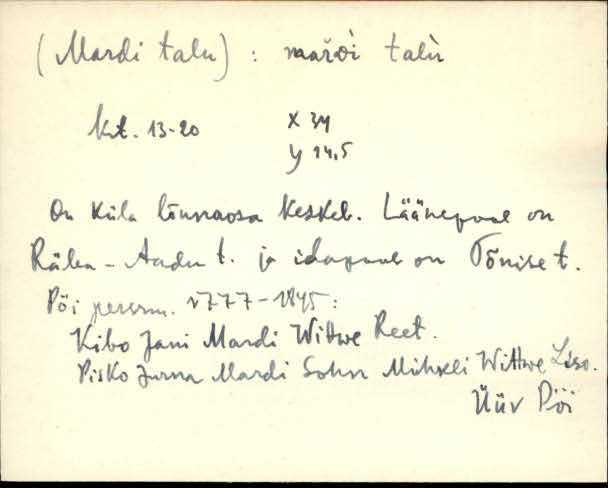 (Mardi talu) : mařði talù
krt. 13-20 X 34
y 14,5
On küla lõunaosa keskel. Läänepool on
Räba-Aadu t. ja idapool on Tõnise t.
Pöi perenm. 1777-1845:
Kibo Jani Mardi Wittwe Reet.
Pisko Jurna Mardi Sohn Mihkli Wittwe Liso.
Üüv Pöi